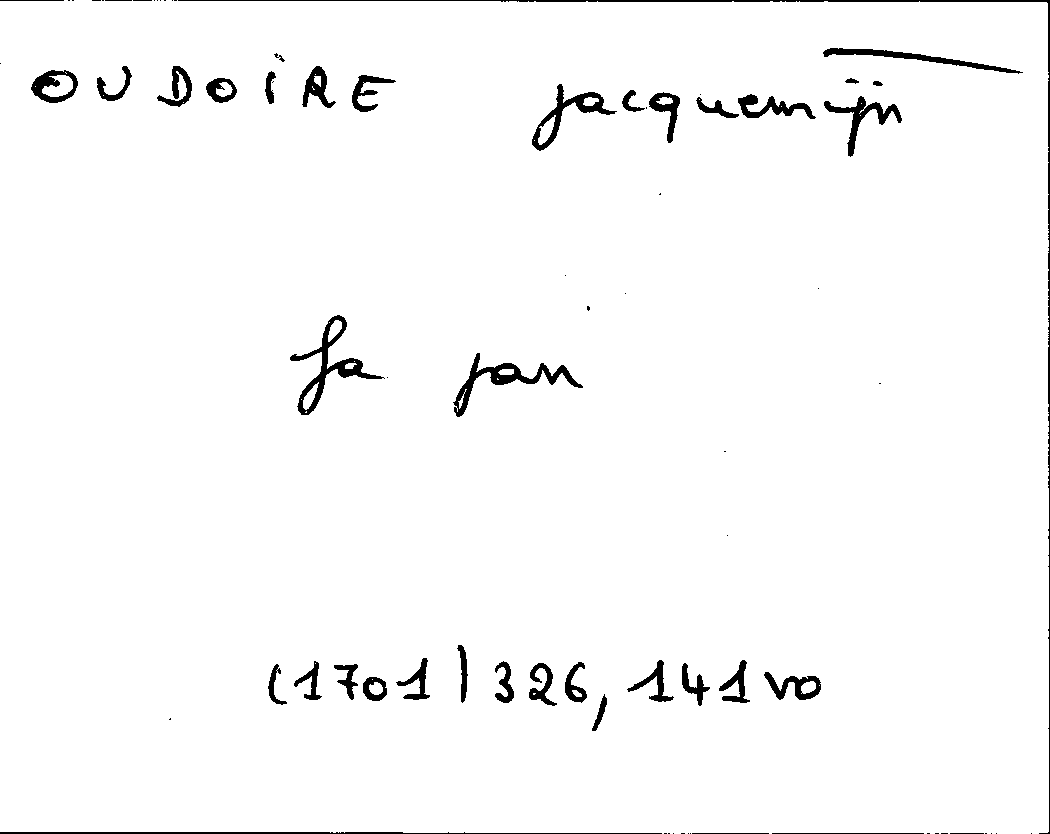 OUDOIRE jacquemijn
fa jan
(1701) 326, 141vo